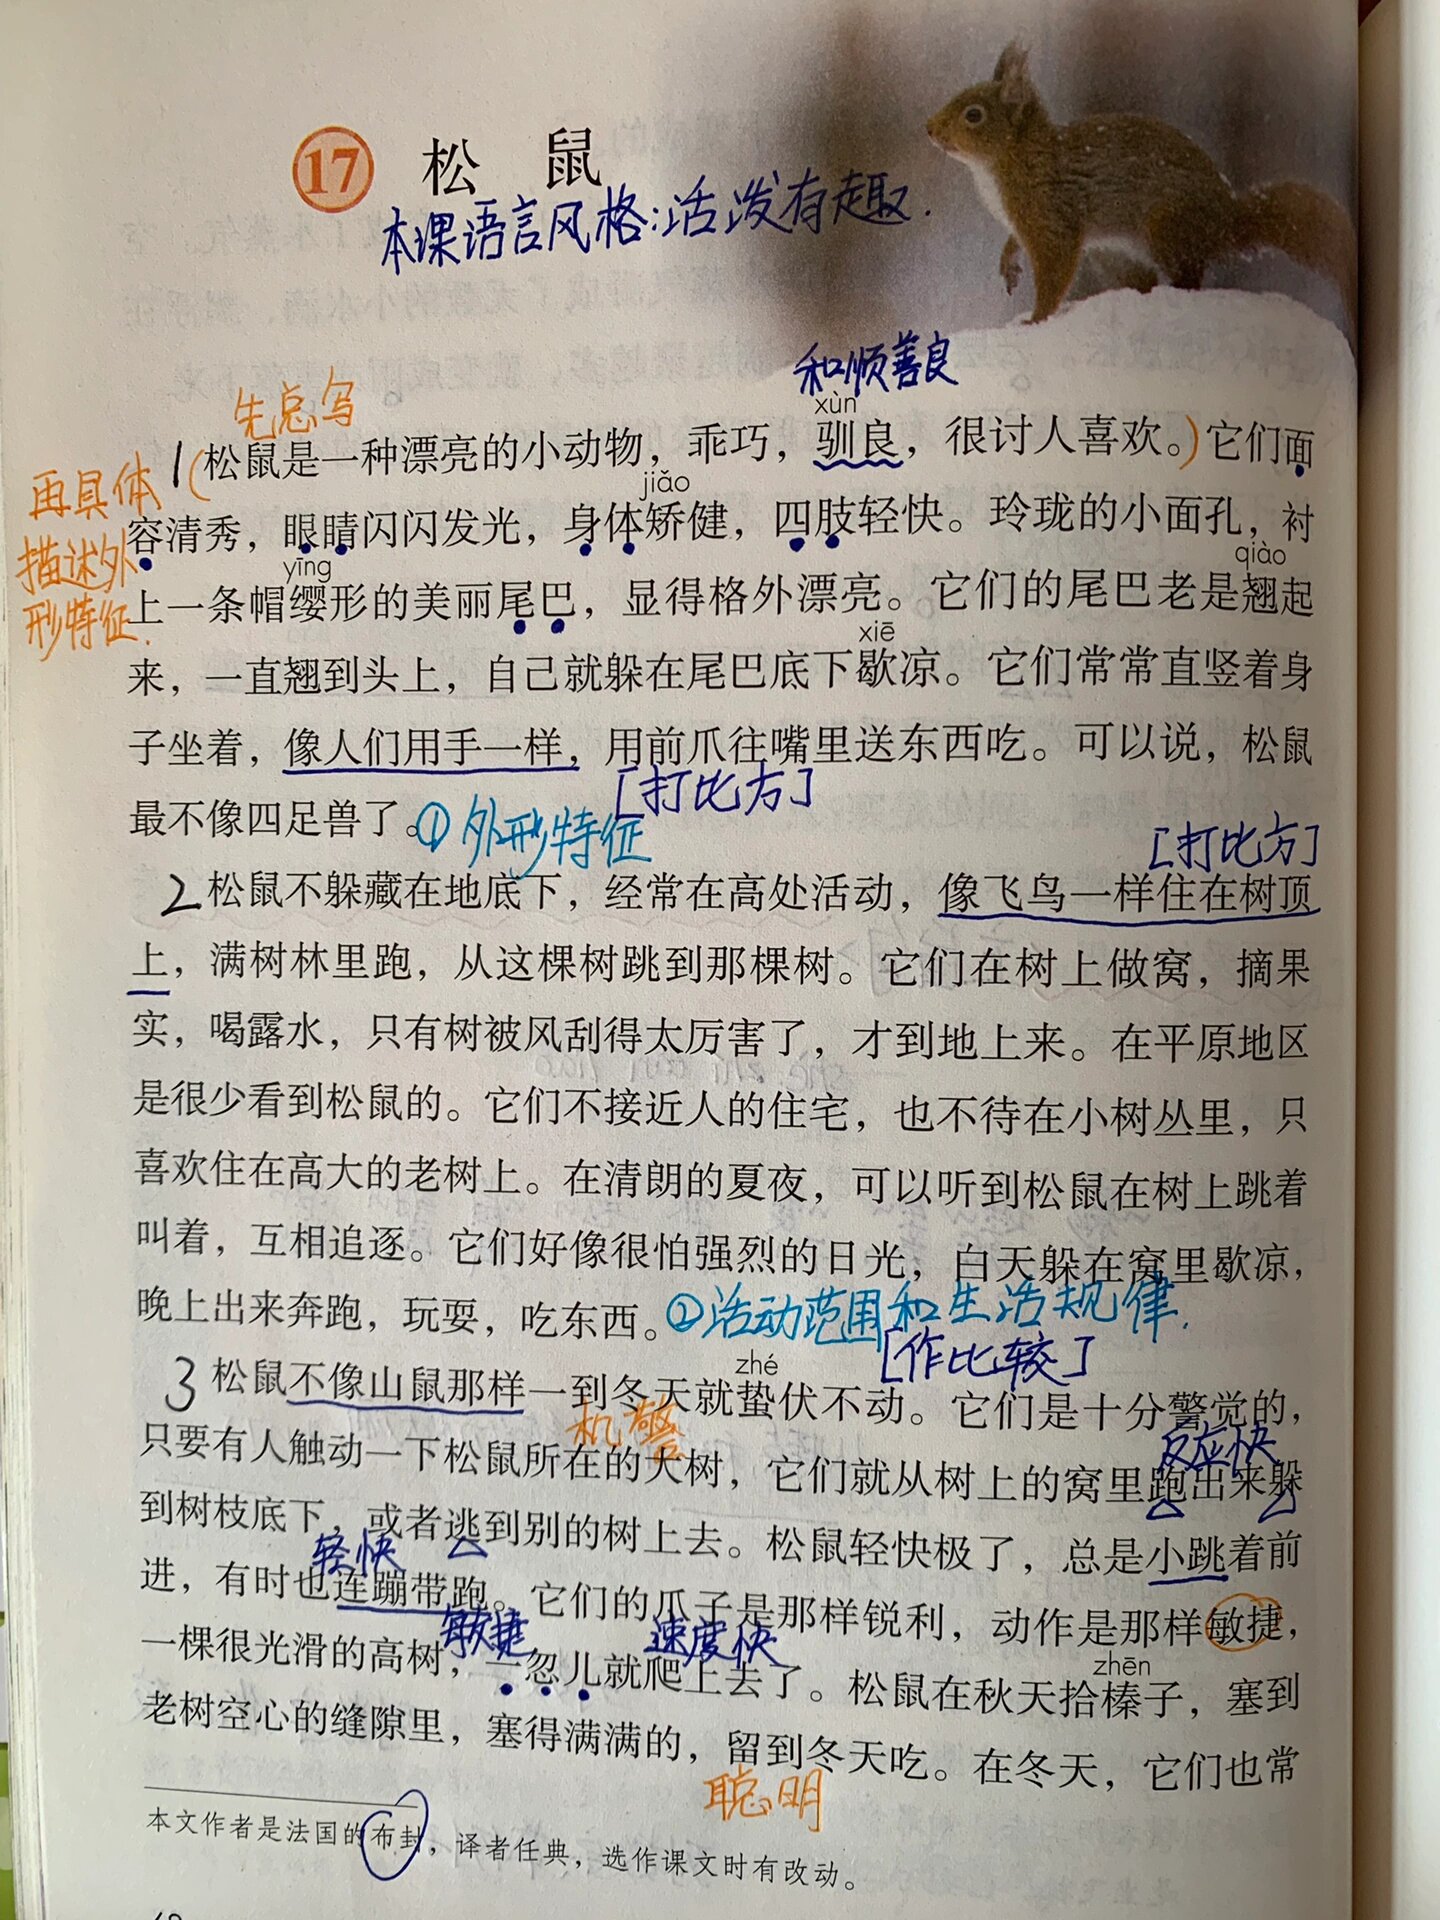 17 松 鼠
本课语言风格:活泼有趣.
和顺善良
xùn
先总写
1(松鼠是一种漂亮的小动物，乖巧，驯良，很讨人喜欢。)它们面
再具体
描述外
形特征.
jiǎo
容清秀，眼睛闪闪发光，身体矫健，四肢轻快。玲珑的小面孔，衬
yīng qiào
上一条帽缨形的美丽尾巴，显得格外漂亮。它们的尾巴老是翘起
xiē
来，一直翘到头上，自己就躲在尾巴底下歇凉。它们常常直竖着身
子坐着，像人们用手一样，用前爪往嘴里送东西吃。可以说，松鼠
[打比方]
最不像四足兽了。①外形特征
[打比方]
2 松鼠不躲藏在地底下，经常在高处活动，像飞鸟一样住在树顶
上，满树林里跑，从这棵树跳到那棵树。它们在树上做窝，摘果
实，喝露水，只有树被风刮得太厉害了，才到地上来。在平原地区
是很少看到松鼠的。它们不接近人的住宅，也不待在小树丛里，只
喜欢住在高大的老树上。在清朗的夏夜，可以听到松鼠在树上跳着
叫着，互相追逐。它们好像很怕强烈的日光，白天躲在窝里歇凉，
晚上出来奔跑，玩耍，吃东西。②活动范围和生活规律.
[作比较]
zhé
3 松鼠不像山鼠那样一到冬天就蛰伏不动。它们是十分警觉的，
机警
反应快
只要有人触动一下松鼠所在的大树，它们就从树上的窝里跑出来躲
到树枝底下，或者逃到别的树上去。松鼠轻快极了，总是小跳着前
轻快
进，有时也连蹦带跑。它们的爪子是那样锐利，动作是那样敏捷，
敏捷 速度快
一棵很光滑的高树，一忽儿就爬上去了。松鼠在秋天拾榛子，塞到
zhēn
老树空心的缝隙里，塞得满满的，留到冬天吃。在冬天，它们也常
聪明
本文作者是法国的布封，译者任典，选作课文时有改动。